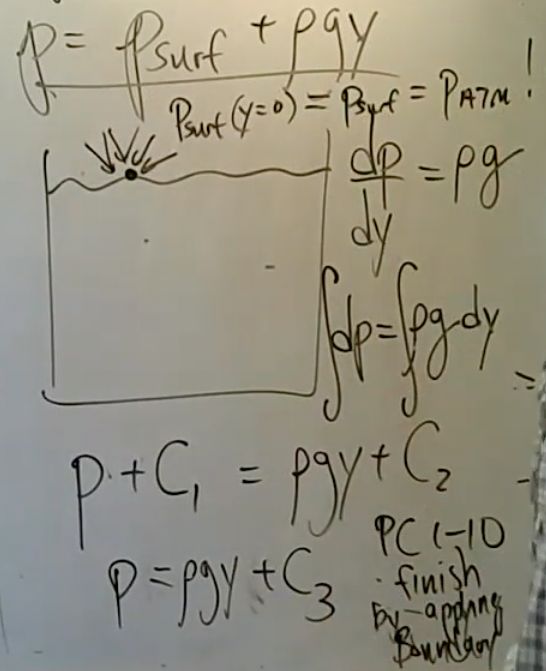 p = p_surf + ρgy
p_surf (y=0) = p_surf = P_ATM!
dp/dy = ρg
∫dp = ∫ρg dy
p + C₁ = ρgy + C₂
p = ρgy + C₃
PC 1-10
· finish
by applying
Boundary